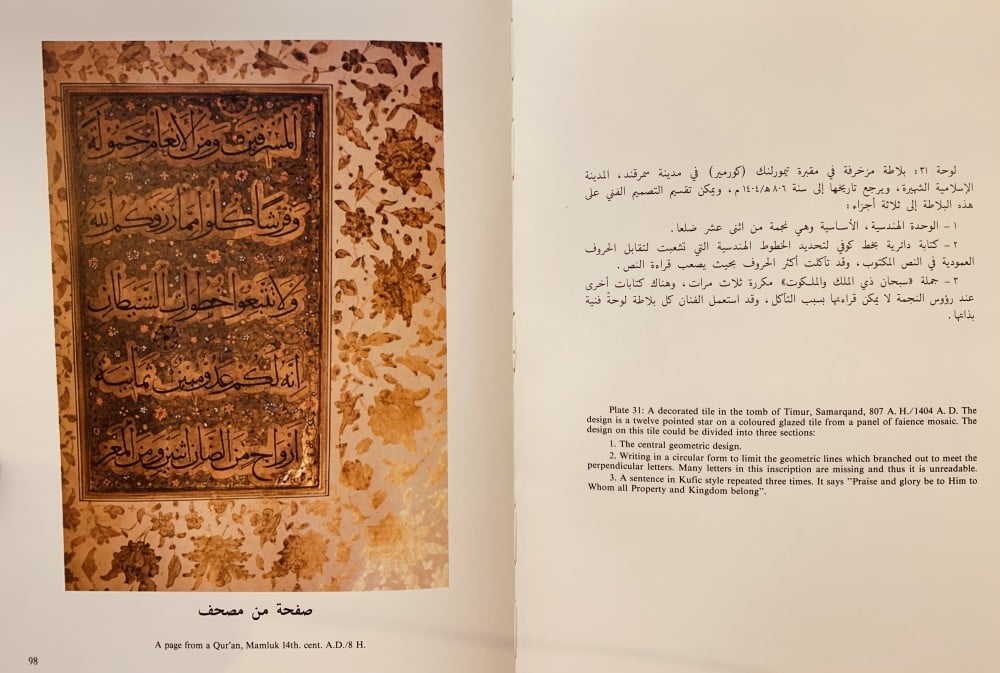 المسرفين ومن الأنعام حمولة
وفرشا كلوا مما رزقكم الله
ولا تتبعوا خطوات الشيطان
إنه لكم عدو مبين ثمانية
أزواج من الضأن اثنين ومن المعز
صفحة من مصحف
A page from a Qur'an, Mamluk 14th. cent. A.D./8 H.
98
لوحة ٣١: بلاطة مزخرفة في مقبرة تيمورلنك (كورمير) في مدينة سمرقند، المدينة
الإسلامية الشهيرة، ويرجع تاريخها إلى سنة ٨٠٦ هـ/١٤٠٤ م، ويمكن تقسيم التصميم الفني على
هذه البلاطة إلى ثلاثة أجزاء:
١ – الوحدة الهندسية، الأساسية وهي نجمة من اثنى عشر ضلعا.
٢ – كتابة دائرية بخط كوفي لتحديد الخطوط الهندسية التي تشعبت لتقابل الحروف
العمودية في النص المكتوب، وقد تآكلت أكثر الحروف بحيث يصعب قراءة النص.
٣ – جملة «سبحان ذي الملك والملكوت» مكررة ثلاث مرات، وهناك كتابات أخرى
عند رؤوس النجمة لا يمكن قراءتها بسبب التآكل، وقد استعمل الفنان كل بلاطة لوحةً فنية
بذاتها.
Plate 31: A decorated tile in the tomb of Timur, Samarqand, 807 A. H./1404 A. D. The
design is a twelve pointed star on a coloured glazed tile from a panel of faience mosaic. The
design on this tile could be divided into three sections:
1. The central geometric design.
2. Writing in a circular form to limit the geometric lines which branched out to meet the
perpendicular letters. Many letters in this inscription are missing and thus it is unreadable.
3. A sentence in Kufic style repeated three times. It says "Praise and glory be to Him to
Whom all Property and Kingdom belong".